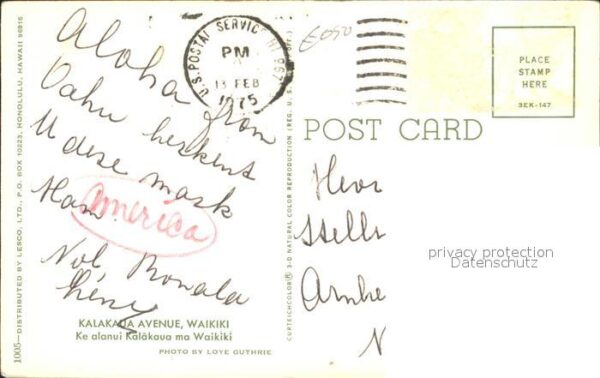 Aloha from
Oahu herkent
U deze mark
Ham
America
Nol, Ronala
U.S. POSTAL SERVICE HI 967
PM
13 FEB
1975
E050
PLACE
STAMP
HERE
3EK-147
POST CARD
Heer
Stell
Arnhe
N
privacy protection
Datenschutz
KALAKAUA AVENUE, WAIKIKI
Ke alanui Kalākaua ma Waikiki
PHOTO BY LOYE GUTHRIE
1005—DISTRIBUTED BY LESCO, LTD., P.O. BOX 10223, HONOLULU, HAWAII 96816
CURTEICHCOLOR® 3-D NATURAL COLOR REPRODUCTION (REG. U.S.